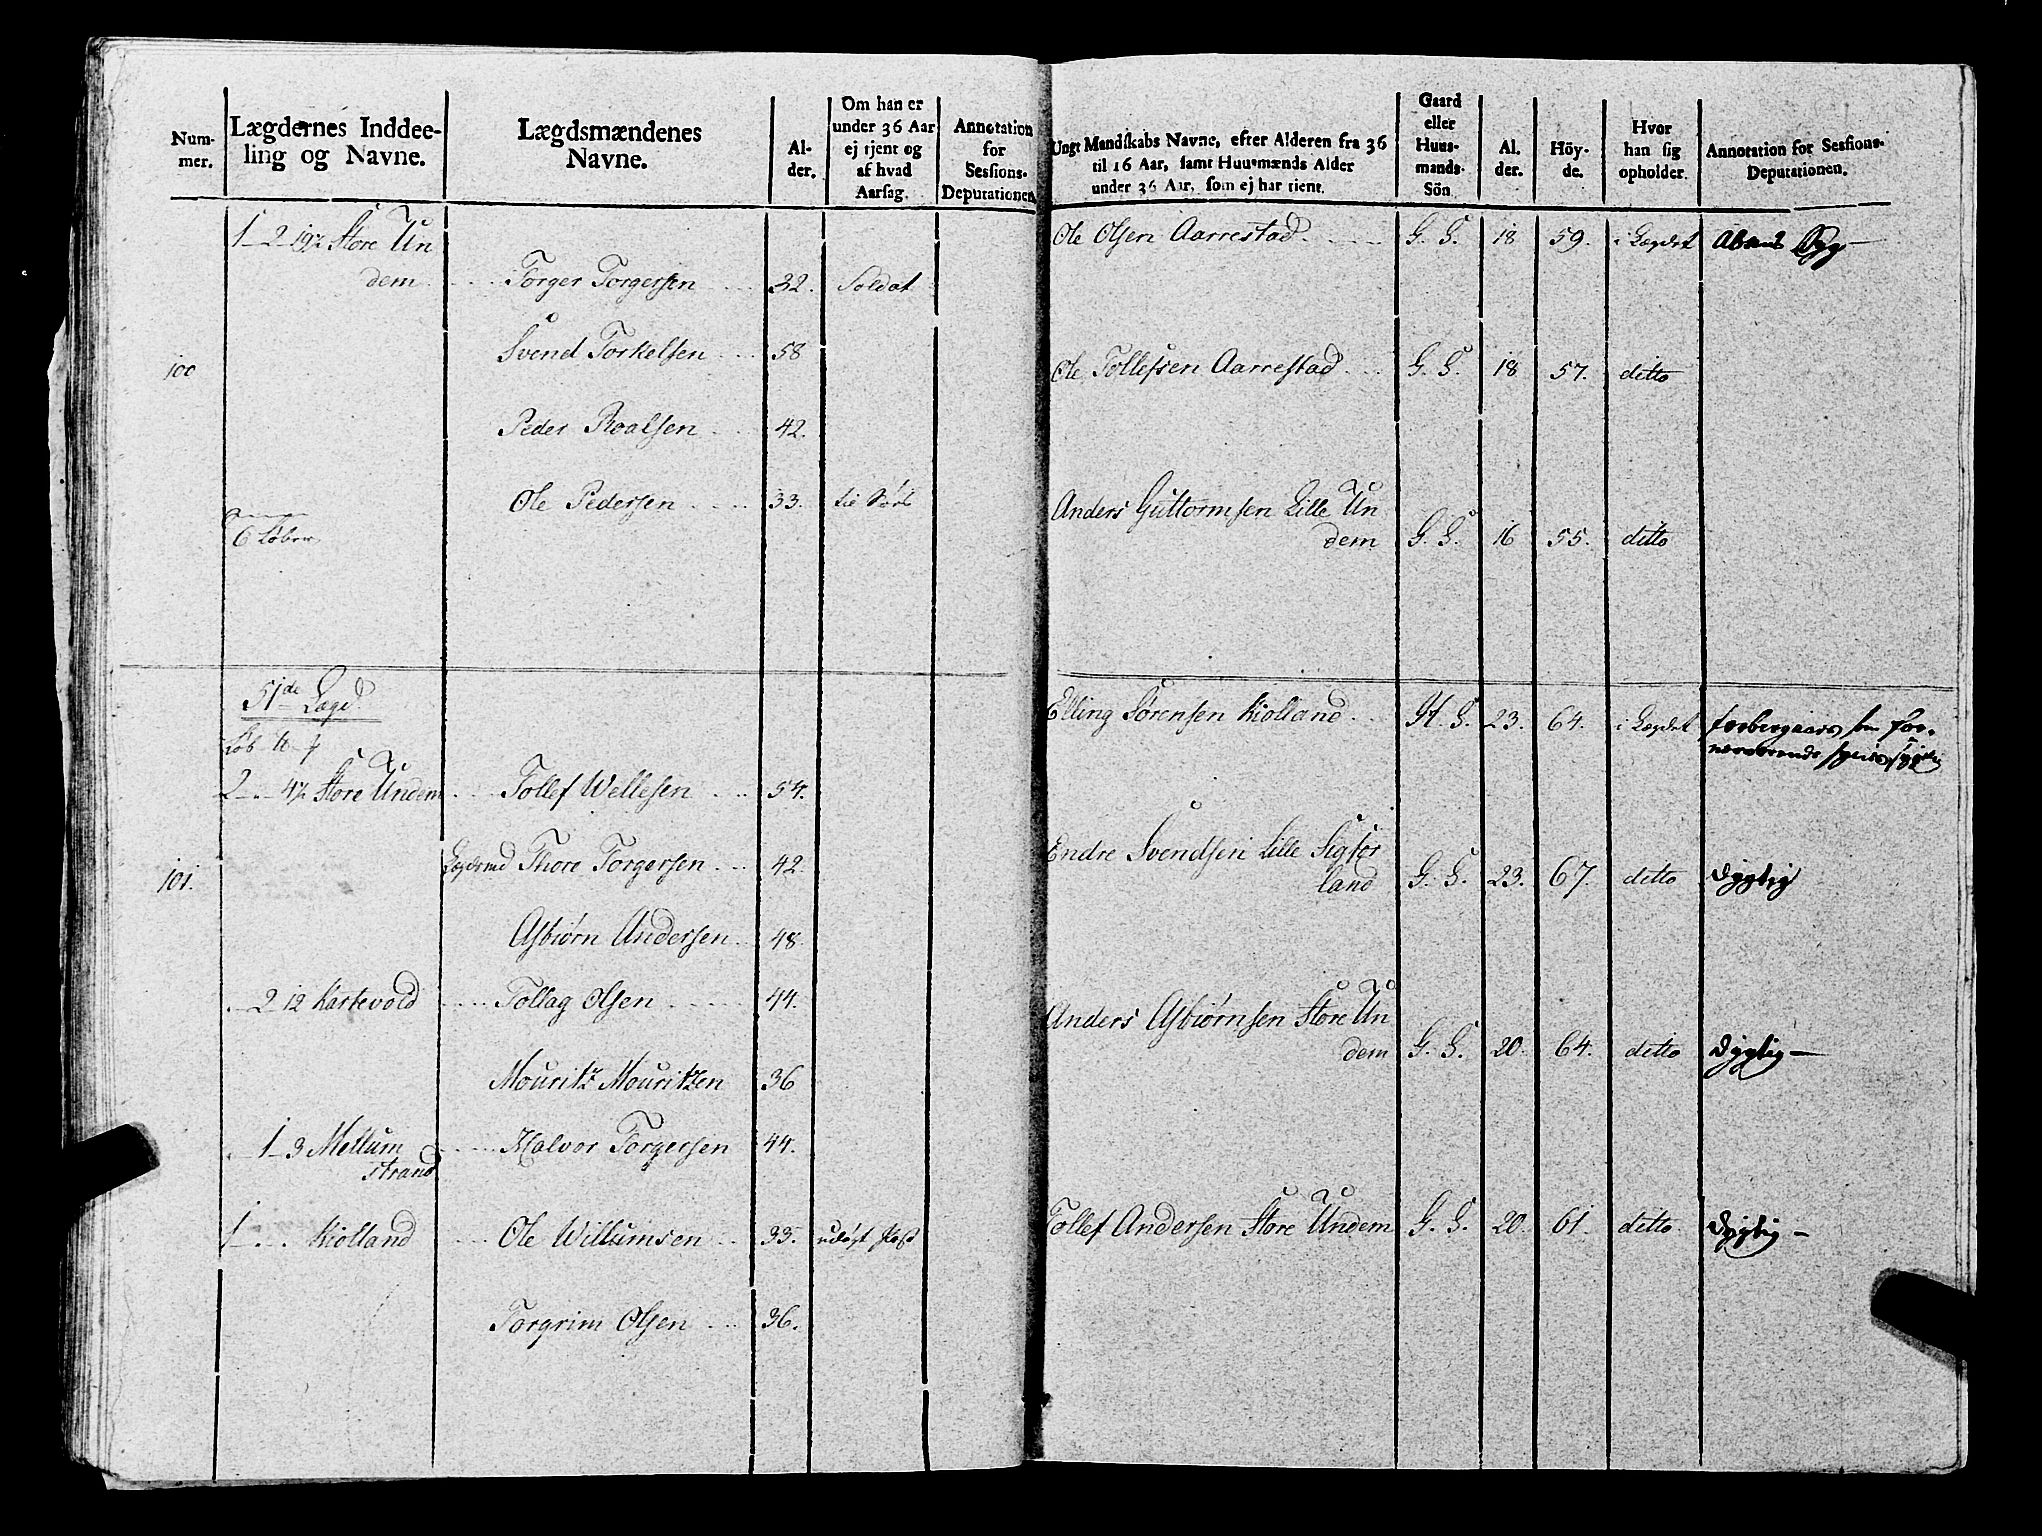 Num-
mer.
Lægdernes Inddee-
ling og Navne.
Lægdsmændenes
Navne.
Al-
der.
Om han er
under 36 Aar
ej tjent og
af hvad
Aarsag.
Annotation
for
Sessions-
Deputationen.
1-2-19½ Store Un
dem
Torger Torgersen 32. Soldat
100
Svend Torkelsen 58
Peder Roalsen 42.
Ole Pedersen 33.
6 Løber
51de Lægd
Løb
2 4½ Store Undem Tollef Wellesen 54.
101. Thore Torgersen 42.
Asbiørn Andersen 48
2 12 Kartevold Tollag Olsen 44.
Mouritz Mouritzen 36
1 3 Mellum
strand
Halvor Torgersen 44.
1 Kiolland Ole Willumsen 33.
Torgrim Olsen 36.
Ungt Mandskabs Navne, efter Alderen fra 36
til 16 Aar, samt Huusmænds Alder
under 36 Aar, som ej har tient.
Gaard
eller
Huus-
mands-
Sön.
Al.
der.
Höy-
de.
Hvor
han sig
opholder.
Annotation for Sessions-
Deputationen.
Ole Olsen Aarrestad G. S. 18 59. i Lægdet
Ole Tollefsen Aarrestad G. S. 18 57. ditto
Anders Guttormsen Lille Un
dem G. S. 16 55. ditto
Elling Sörensen Kiolland H. S. 23. 64. i Lægdet
Endre Svendsen Lille Sigsør
land G. S. 23. 67. ditto dygtig
Anders Asbiørnsen Store Un
dem G. S. 20. 64. ditto dygtig
Tollef Andersen Store Undem G. S. 20. 61. ditto dygtig